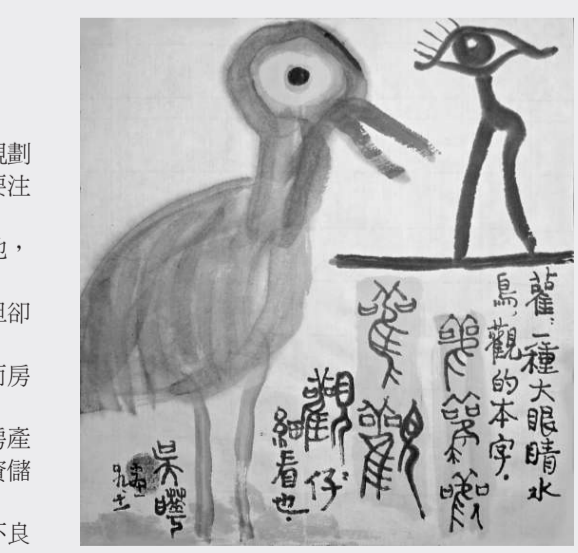 規劃
要注
但卻
而房
房產
資儲
不良
雚:一種大眼睛水
鳥,觀的本字.
觀仔
細看也.